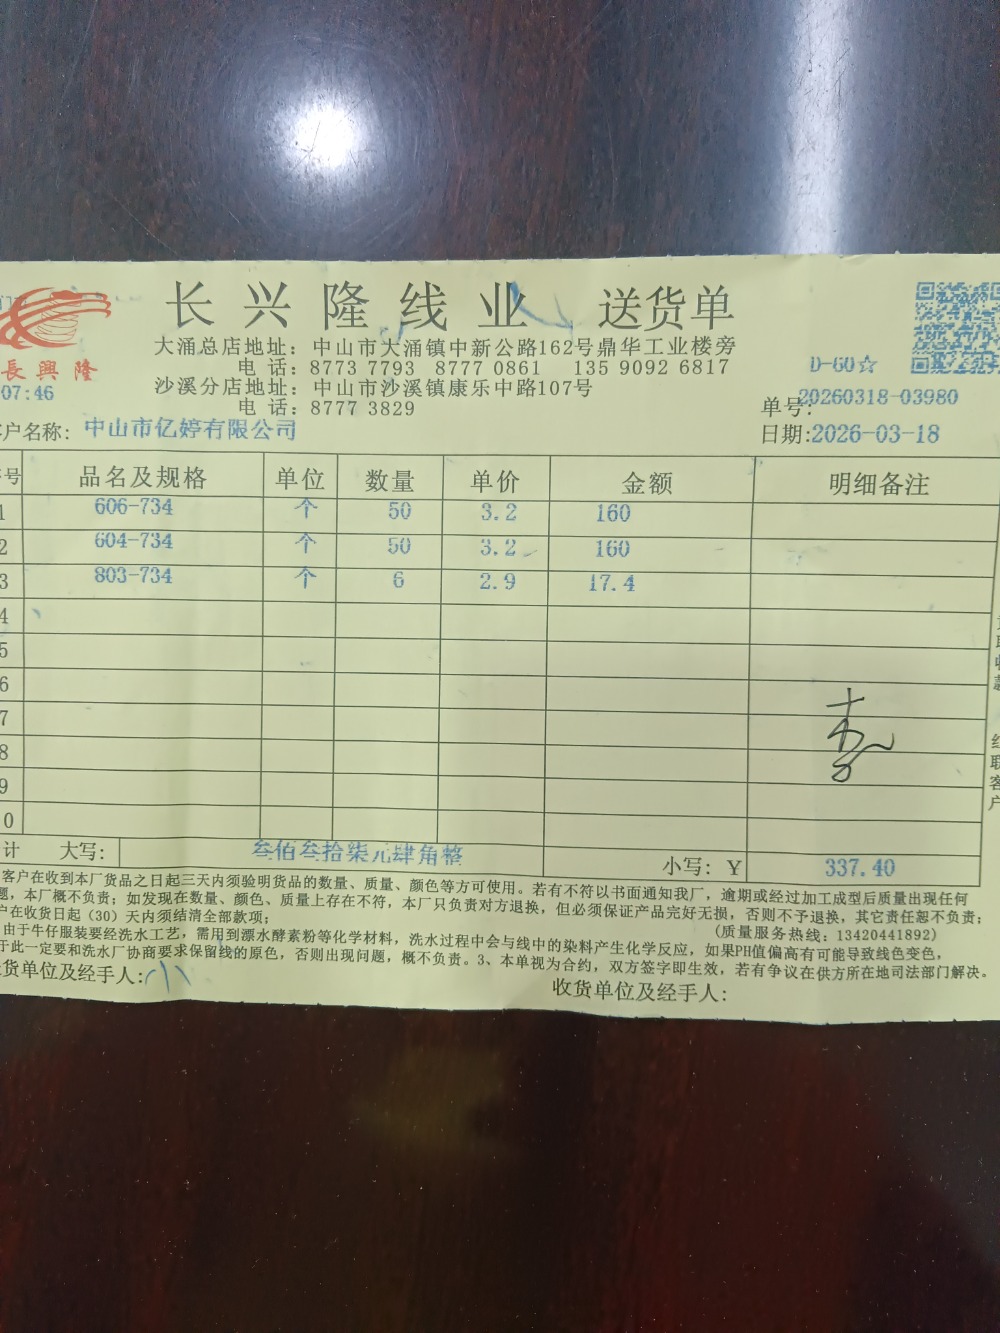 长兴隆线业 送货单
長興隆
大涌总店地址：中山市大涌镇中新公路162号鼎华工业楼旁
电 话：8773 7793 8777 0861 135 9092 6817
沙溪分店地址：中山市沙溪镇康乐中路107号
电 话：8777 3829
D-60☆
07:46
单号：20260318-03980
户名称：中山市亿婷有限公司
日期:2026-03-18
号 品名及规格 单位 数量 单价 金额 明细备注
1 606-734 个 50 3.2 160
2 604-734 个 50 3.2 160
3 803-734 个 6 2.9 17.4
4
5
6
7
8
9
0
计 大写： 叁佰叁拾柒元肆角整 小写：￥ 337.40
客户在收到本厂货品之日起三天内须验明货品的数量、质量、颜色等方可使用。若有不符以书面通知我厂，逾期或经过加工成型后质量出现任何
题，本厂概不负责；如发现在数量、颜色、质量上存在不符，本厂只负责对方退换，但必须保证产品完好无损，否则不予退换，其它责任恕不负责；
户在收货日起（30）天内须结清全部款项；
(质量服务热线：13420441892)
由于牛仔服装要经洗水工艺，需用到漂水酵素粉等化学材料，洗水过程中会与线中的染料产生化学反应，如果PH值偏高有可能导致线色变色，
于此一定要和洗水厂协商要求保留线的原色，否则出现问题，概不负责。3、本单视为合约，双方签字即生效，若有争议在供方所在地司法部门解决。
货单位及经手人：
收货单位及经手人：